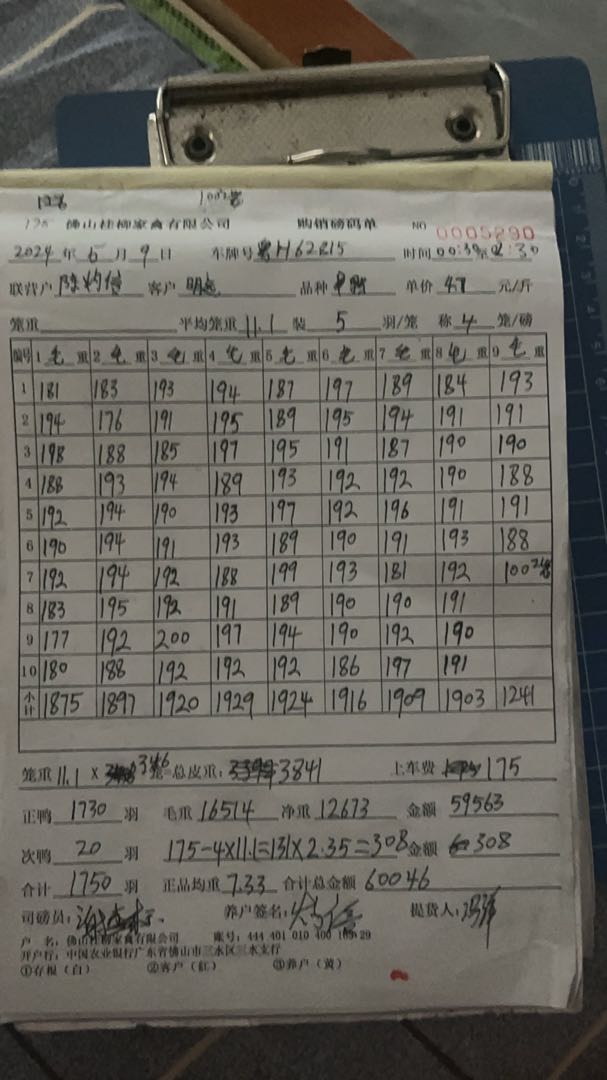 100 2笼
佛山桂柳家禽有限公司 购销磅码单 NO 0005290
2024年6月9日 车牌号 粤H62815 时间 00:30至02:30
联营户 客户 品种 单价 4.7 元/斤
笼重 平均笼重 11.1 装 5 羽/笼 称 4 笼/磅
编号 1 毛 重 2 毛 重 3 毛 重 4 毛 重 5 毛 重 6 毛 重 7 毛 重 8 毛 重 9 毛 重
1 181 183 193 194 187 197 189 184 193
2 194 176 191 195 189 195 194 191 191
3 198 188 185 197 195 191 187 190 190
4 188 193 194 189 193 192 192 190 188
5 192 194 190 193 197 192 196 191 191
6 190 194 191 193 189 190 191 193 188
7 192 194 192 188 199 193 181 192 100 2笼
8 183 195 192 191 189 190 190 191
9 177 192 200 197 194 190 192 190
10 180 188 192 192 192 186 197 191
小计 1875 1897 1920 1929 1924 1916 1909 1903 1241
笼重 11.1 × 346 笼=总皮重: 3841 上车费 175
正鸭 1730 羽 毛重 16514 净重 12673 金额 59563
次鸭 20 羽 175-4×11.1=131×2.35=308 金额 308
合计 1750 羽 正品均重 7.33 合计总金额 60046
司磅员: 养户签名: 提货人:
户 名: 佛山桂柳家禽有限公司 账号: 444 401 010 400 169 29
开户行: 中国农业银行广东省佛山市三水区三水支行
①存根(白) ②客户(红) ③养户(黄)